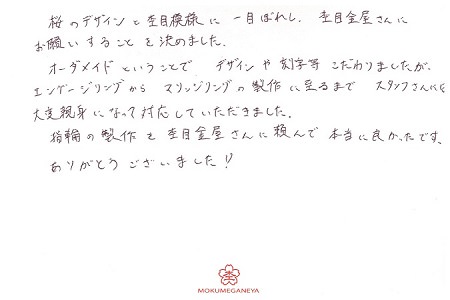 桜のデザインと杢目模様に一目ぼれし、杢目金屋さんに
お願いすることを決めました。
オーダメイドということで デザインや刻字等 こだわりましたが、
エンゲージリングから マリッジリングの製作に至るまで スタッフさんには
大変親身になって対応していただきました。
指輪の製作を杢目金屋さんに頼んで 本当に良かったです。
ありがとうございました!!
MOKUMEGANEYA